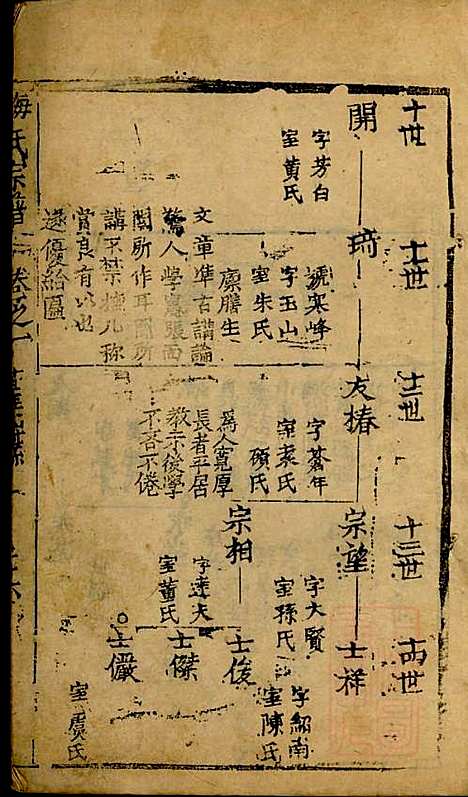 十世
十一世
十二世
十三世
十四世
開
琦
友椿
宗望
士祥
字芳白
室黃氏
號寒峰
字玉山
室朱氏
廩膳生
文章準古講論
驚人學寬張而
閩所作耳聞所
講不禁擁几称
賞良有以也
遂優給匾
字蒼年
室袁氏
碩氏
為人寬厚
長者平居
教示後學
不吝不倦
字大賢
室孫氏
宗相
字達夫
室董氏
字紹南
室陳氏
士俊
士傑
士儼
室虞氏
梅氏宗譜
卷之一